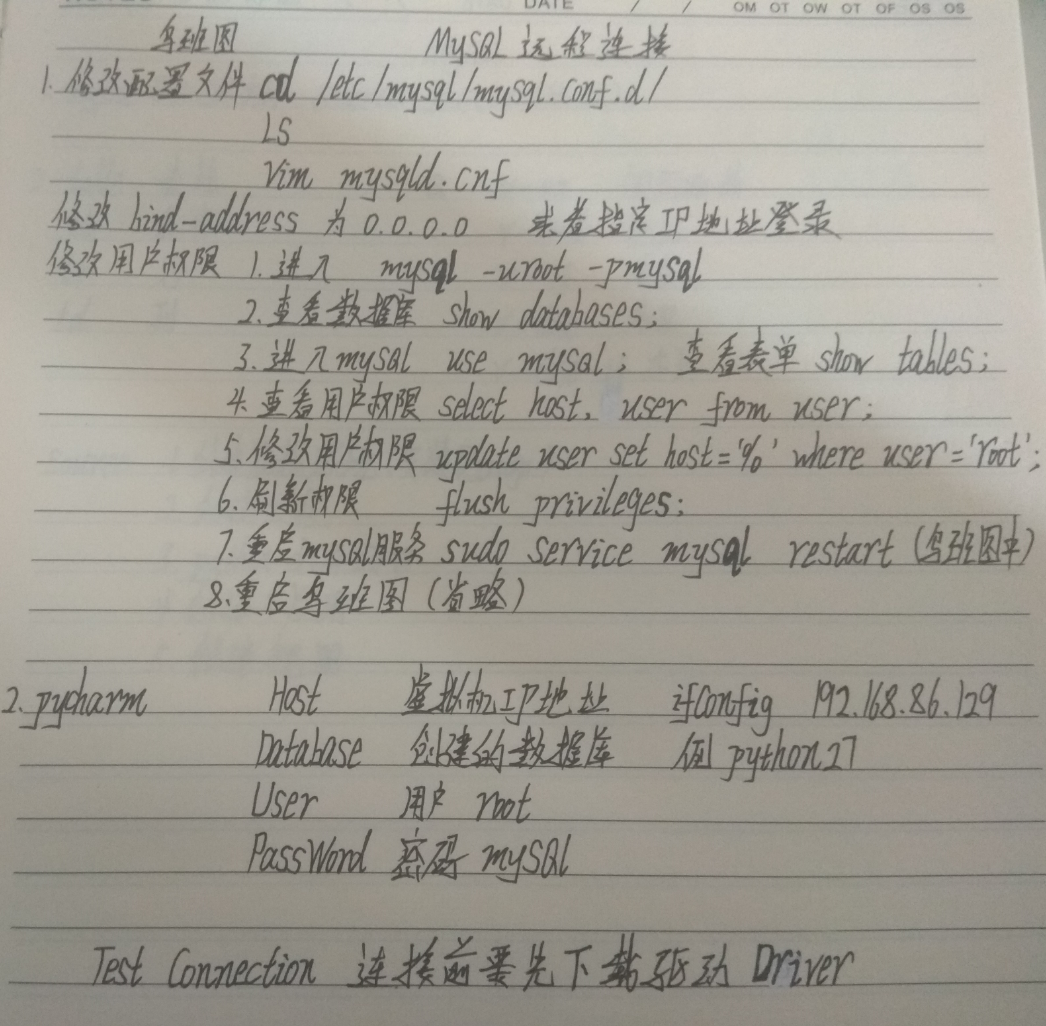 DATE / / OM OT OW OT OF OS OS
乌班图 MySQL 远程连接
1. 修改配置文件 cd /etc/mysql/mysql.conf.d/
LS
Vim mysqld.cnf
修改 bind-address 为 0.0.0.0 或者指定IP地址登录
修改用户权限 1. 进入 mysql -uroot -pmysql
2. 查看数据库 show databases;
3. 进入mysql use mysql; 查看表单 show tables;
4. 查看用户权限 select host, user from user;
5. 修改用户权限 update user set host='%' where user='root';
6. 刷新权限 flush privileges;
7. 重启mysql服务 sudo service mysql restart (乌班图中)
8. 重启乌班图 (省略)
2. pycharm Host 虚拟机IP地址 ifConfig 192.168.86.129
Database 创建的数据库 例 python27
User 用户 root
PassWord 密码 mySQl
Test Connection 连接前要先下载驱动 Driver